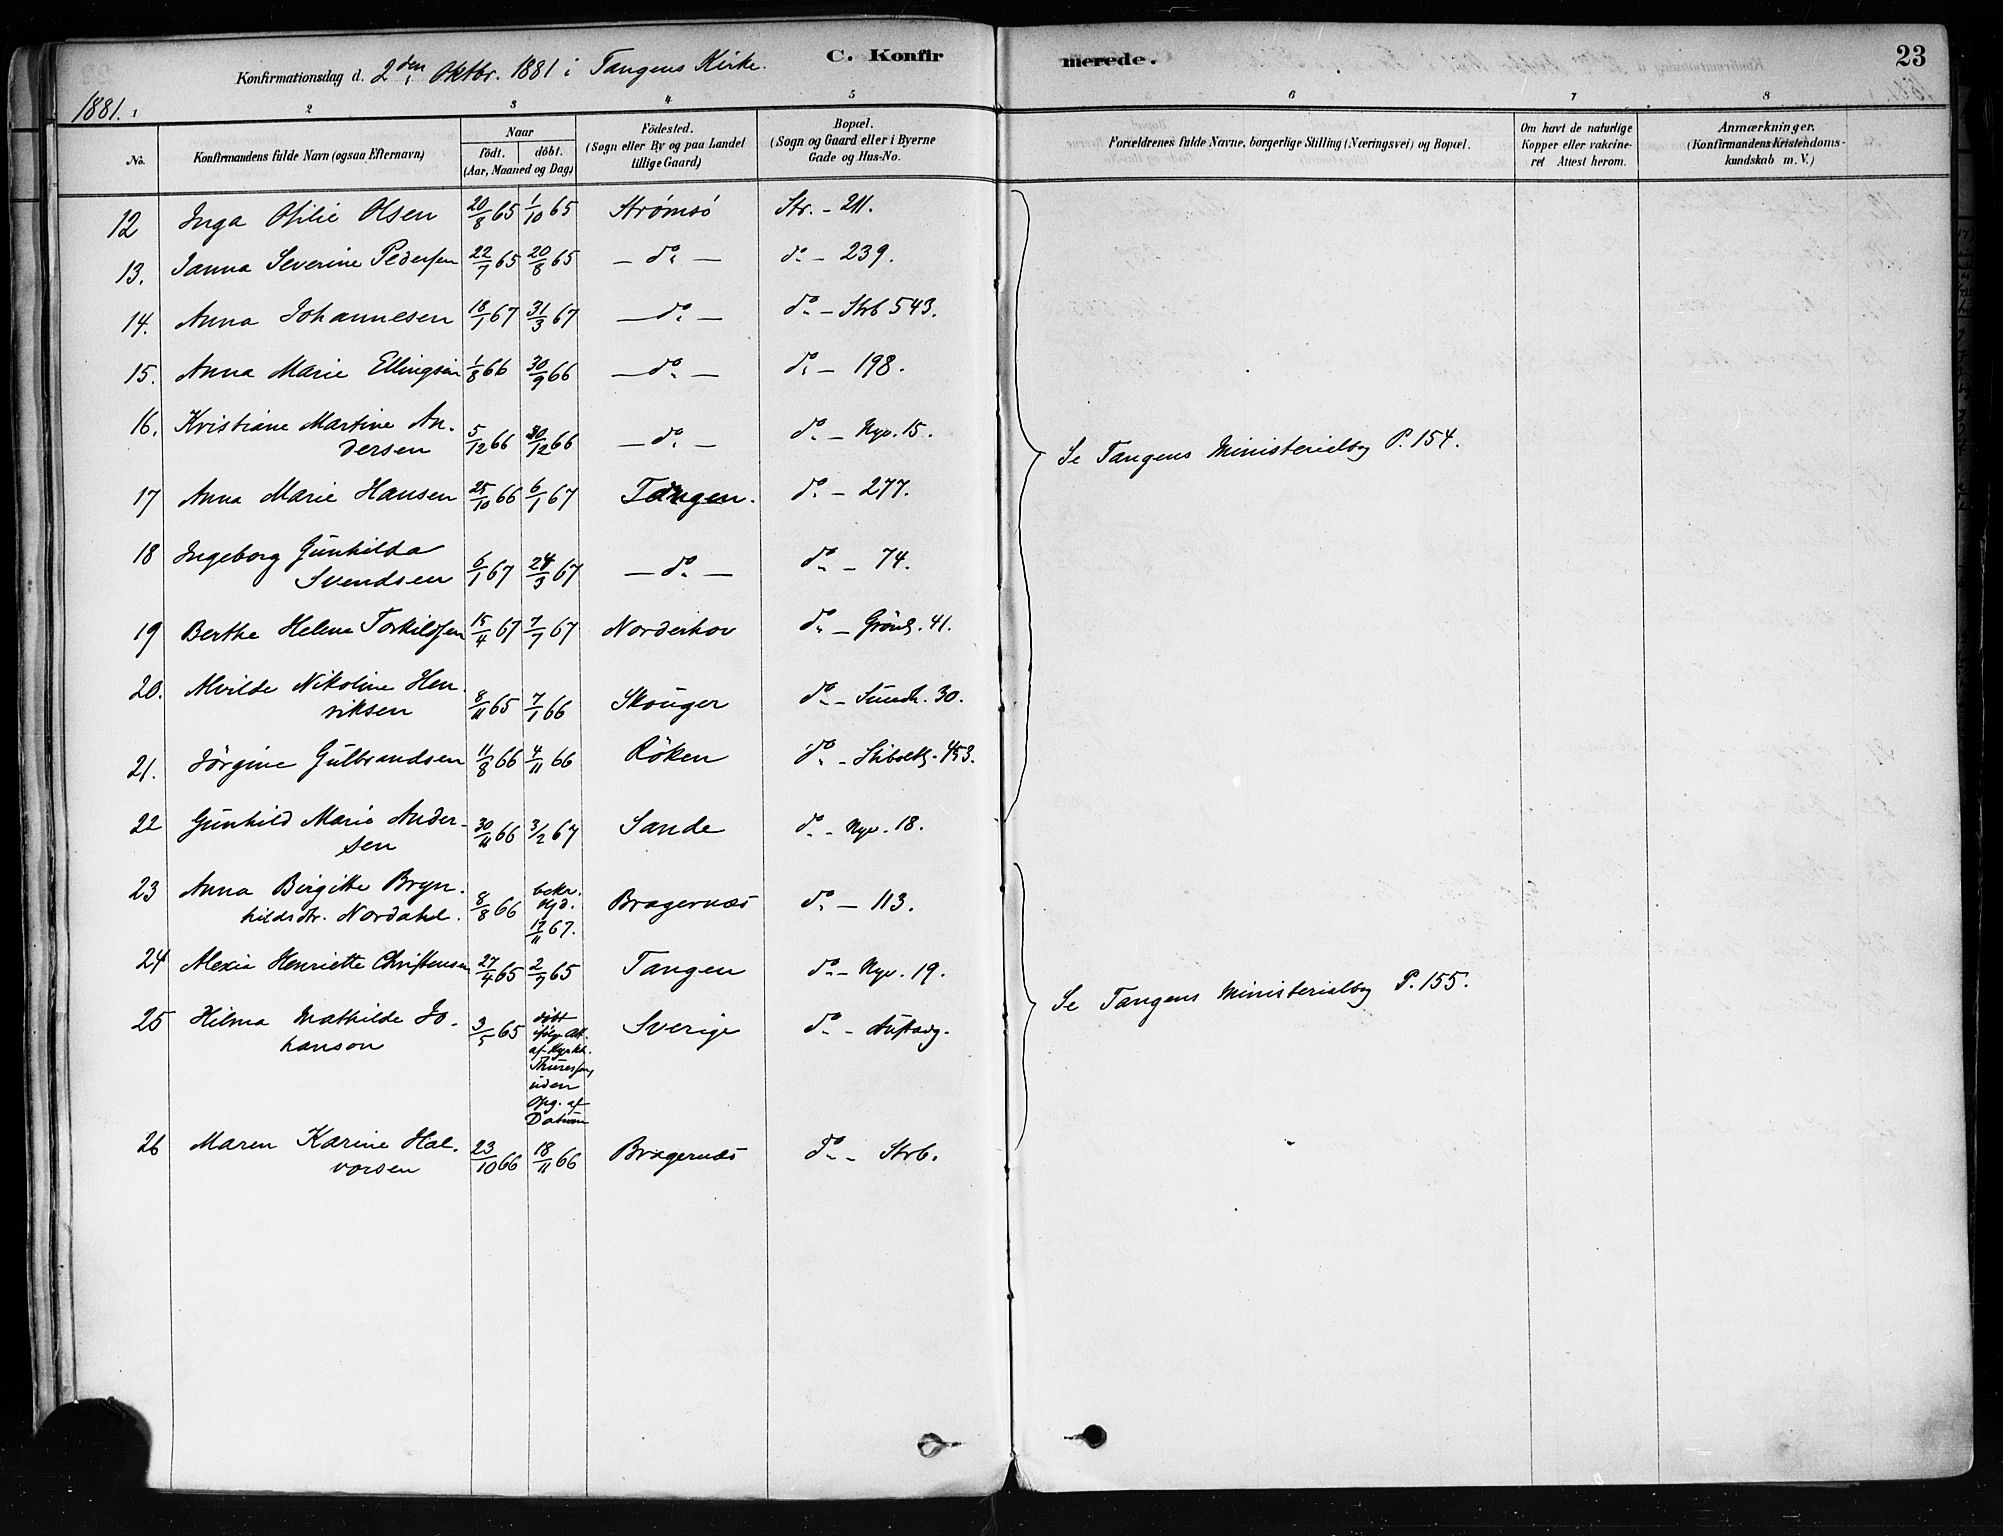 Konfirmationsdag d. 2den Oktbr. 1881 i Tangens Kirke. C. Konfirmerede. 23
1881.
1 2 3 4 5 6 7 8
No. Konfirmandens fulde Navn (ogsaa Efternavn) Naar Födt. döbt. (Aar, Maaned og Dag) Födested. (Sogn eller By og paa Landet tillige Gaard) Bopæl. (Sogn og Gaard eller i Byerne Gade og Hus-No. Forældrenes fulde Navne, borgerlige Stilling (Næringsvei) og Bopæl. Om havt de naturlige Kopper eller vakcineret Attest herom. Anmærkninger. (Konfirmandens Kristendomskundskab m. V.)
12 Inga Ofilie Olsen 20/8 65 1/10 65 Strømsö Str. - 211.
13. Janna Severine Pedersen 22/7 65 20/8 65 — do — do - 239.
14. Anna Johannesen 18/1 67 31/3 67 — do — do - Strb 543.
15. Anna Marie Ellingsen 1/8 66 30/9 66 — do — do - 198.
16. Kristiane Martine An-
dersen 5/12 66 30/12 66 — do — do - Nyv. 15.
17 Anna Marie Hansen 25/10 66 6/1 67 Tangen. do - 277.
Se Tangens Ministerialbog P. 154.
18 Ingeborg Gunhilda
Svendsen 6/1 67 24/3 67 — do — do - 74.
19 Berthe Helene Torkildsen 15/4 67 7/7 67 Norderhov do - Grönl. 41.
20. Alvilde Nikoline Hen-
riksen 8/11 65 7/1 66 Skouger do - 30.
21. Jörgine Gulbrandsen 11/8 66 4/11 66 Röken do - 453.
22 Gunhild Marie Ander-
sen 30/11 66 3/2 67 Sande do - Nyv. 18.
23 Anna Birgitte Bryn-
hildsdtr. Nordahl. 8/8 66 bekr. Hjd. 17/11 67. Bragernæs do - 113.
24 Alexia Henriette Christensen 27/4 65 2/7 65 Tangen do - Nyv. 19.
Se Tangens Ministerialbog P. 155.
25 Hilma Mathilde Jo-
hanson 3/5 65 döbt
ifölge Att.
af Kyrkh.
uden
Opg. af
Datum Sverige do -
26 Maren Karine Hal-
vorsen 23/10 66 18/11 66 Bragernæs do - Strb.